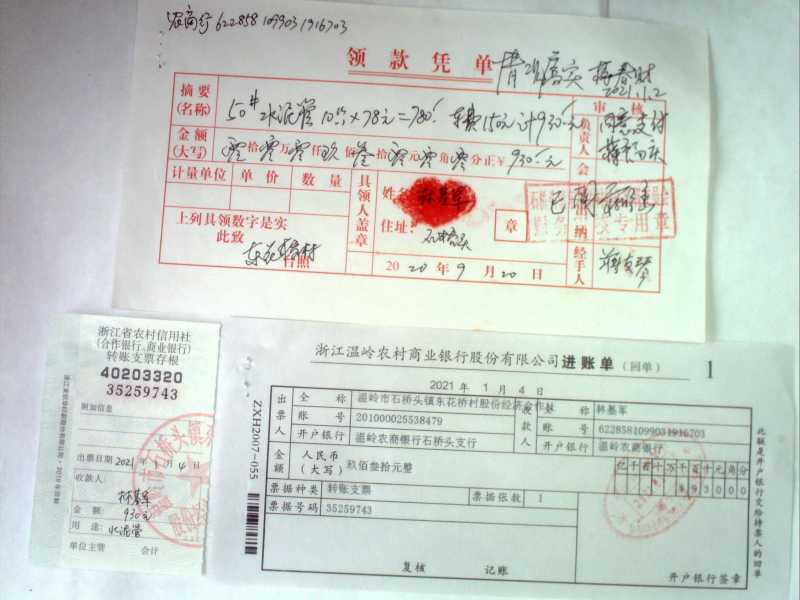 农商行 6228581099031916703
领款凭单
情况属实
2021.1.2
摘要(名称)
50# 水泥管 10节×78元=780 车费150元 计930元
审核
同意支付
金额(大写) 零拾零万零仟玖佰叁拾零元零角零分正¥930元
负责人
计量单位 单价 数量
具领人盖章
姓名
会
已
住址: 石桥头
章
出纳
上列具领数字是实
此致
东花桥村
台照
2020年9月20日
经手人
浙江省农村信用社
(合作银行、商业银行)
转账支票存根
40203320
35259743
附加信息
出票日期 2021年1月4日
收款人:
林基军
金额:
930元
用途: 水泥管
单位主管 会计
浙江温岭农村商业银行股份有限公司进账单(回单) 1
2021年1月4日
出票人 全称 温岭市石桥头镇东花桥村股份经济合作社
账号 201000025538479
开户银行 温岭农商银行石桥头支行
收款人 全称 林基军
账号 6228581099031916703
开户银行 温岭农商银行
金额 人民币(大写) 玖佰叁拾元整
亿千百十万千百十元角分
¥93000
票据种类 转账支票 票据张数 1
票据号码 35259743
复核 记账
开户银行签章
ZXH2007-055
此联是开户银行交给持票人的回单